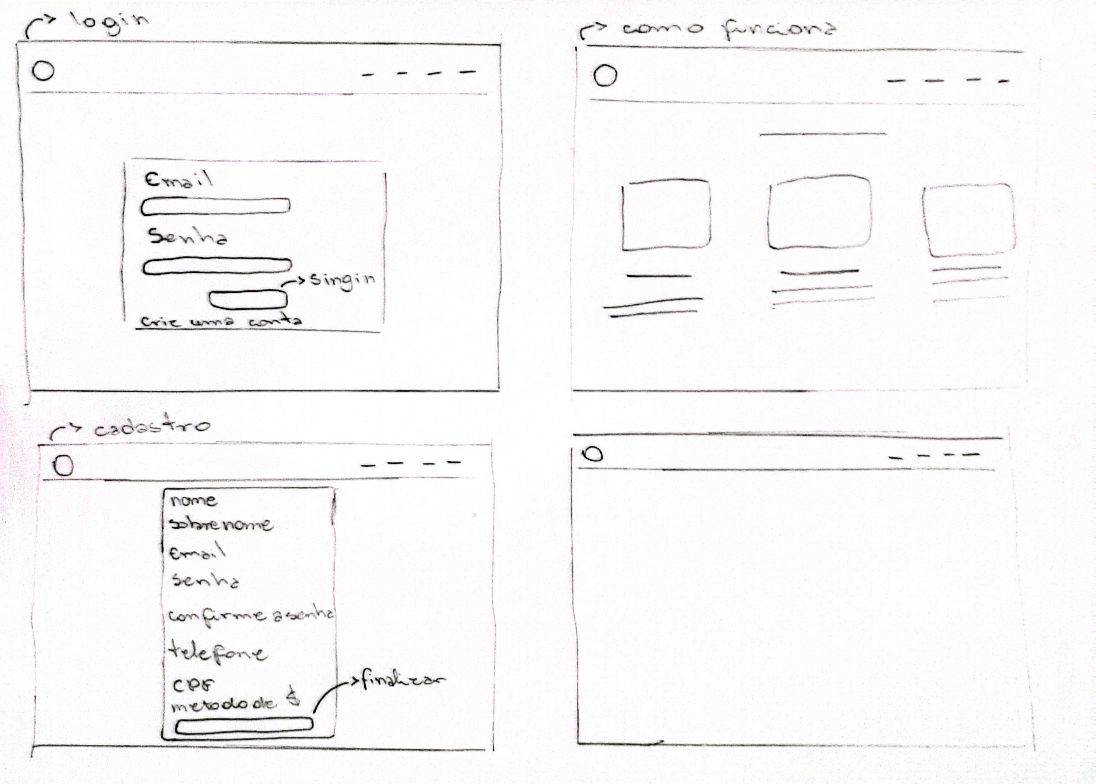 login
Email
Senha
singin
crie uma conta
como funciona
cadastro
nome
sobrenome
email
senha
confirme a senha
telefone
CPF
metodo de $
finalizar